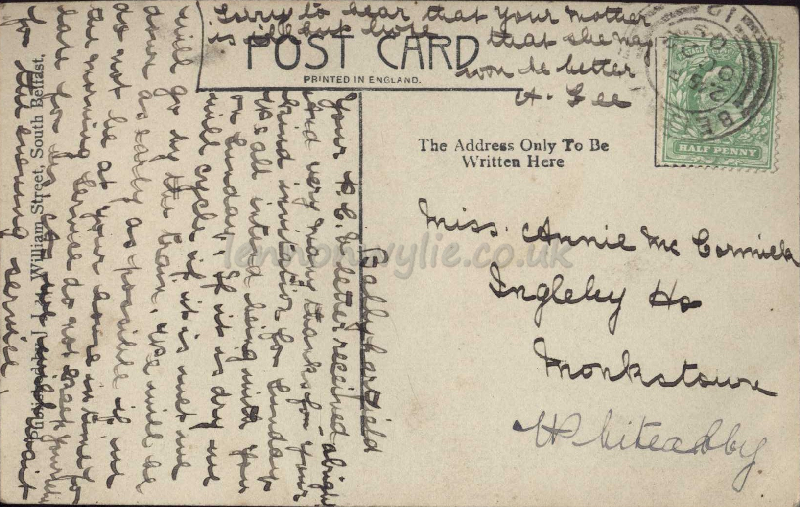 Sorry to hear that your mother
is ill but hope that she may
soon be better
A. Lee
POST CARD
PRINTED IN ENGLAND.
The Address Only To Be
Written Here
HALF PENNY
Miss. Annie Mc Cormick
Ingleby Ho
Monkstown
Whiteabby
Ballyharfield
Your P.C. & letter received alright
and very many thanks for your
kind invitation for Sunday
we all intend being with you
on Sunday. if it is dry we
will cycle if it is wet we
will go by the train. we will be
down as early as possible if we
do not be at your house in time
the morning service do not keep yourself
late for we will wait
for the evening service
William Street, South Belfast.
lennonwylie.co.uk